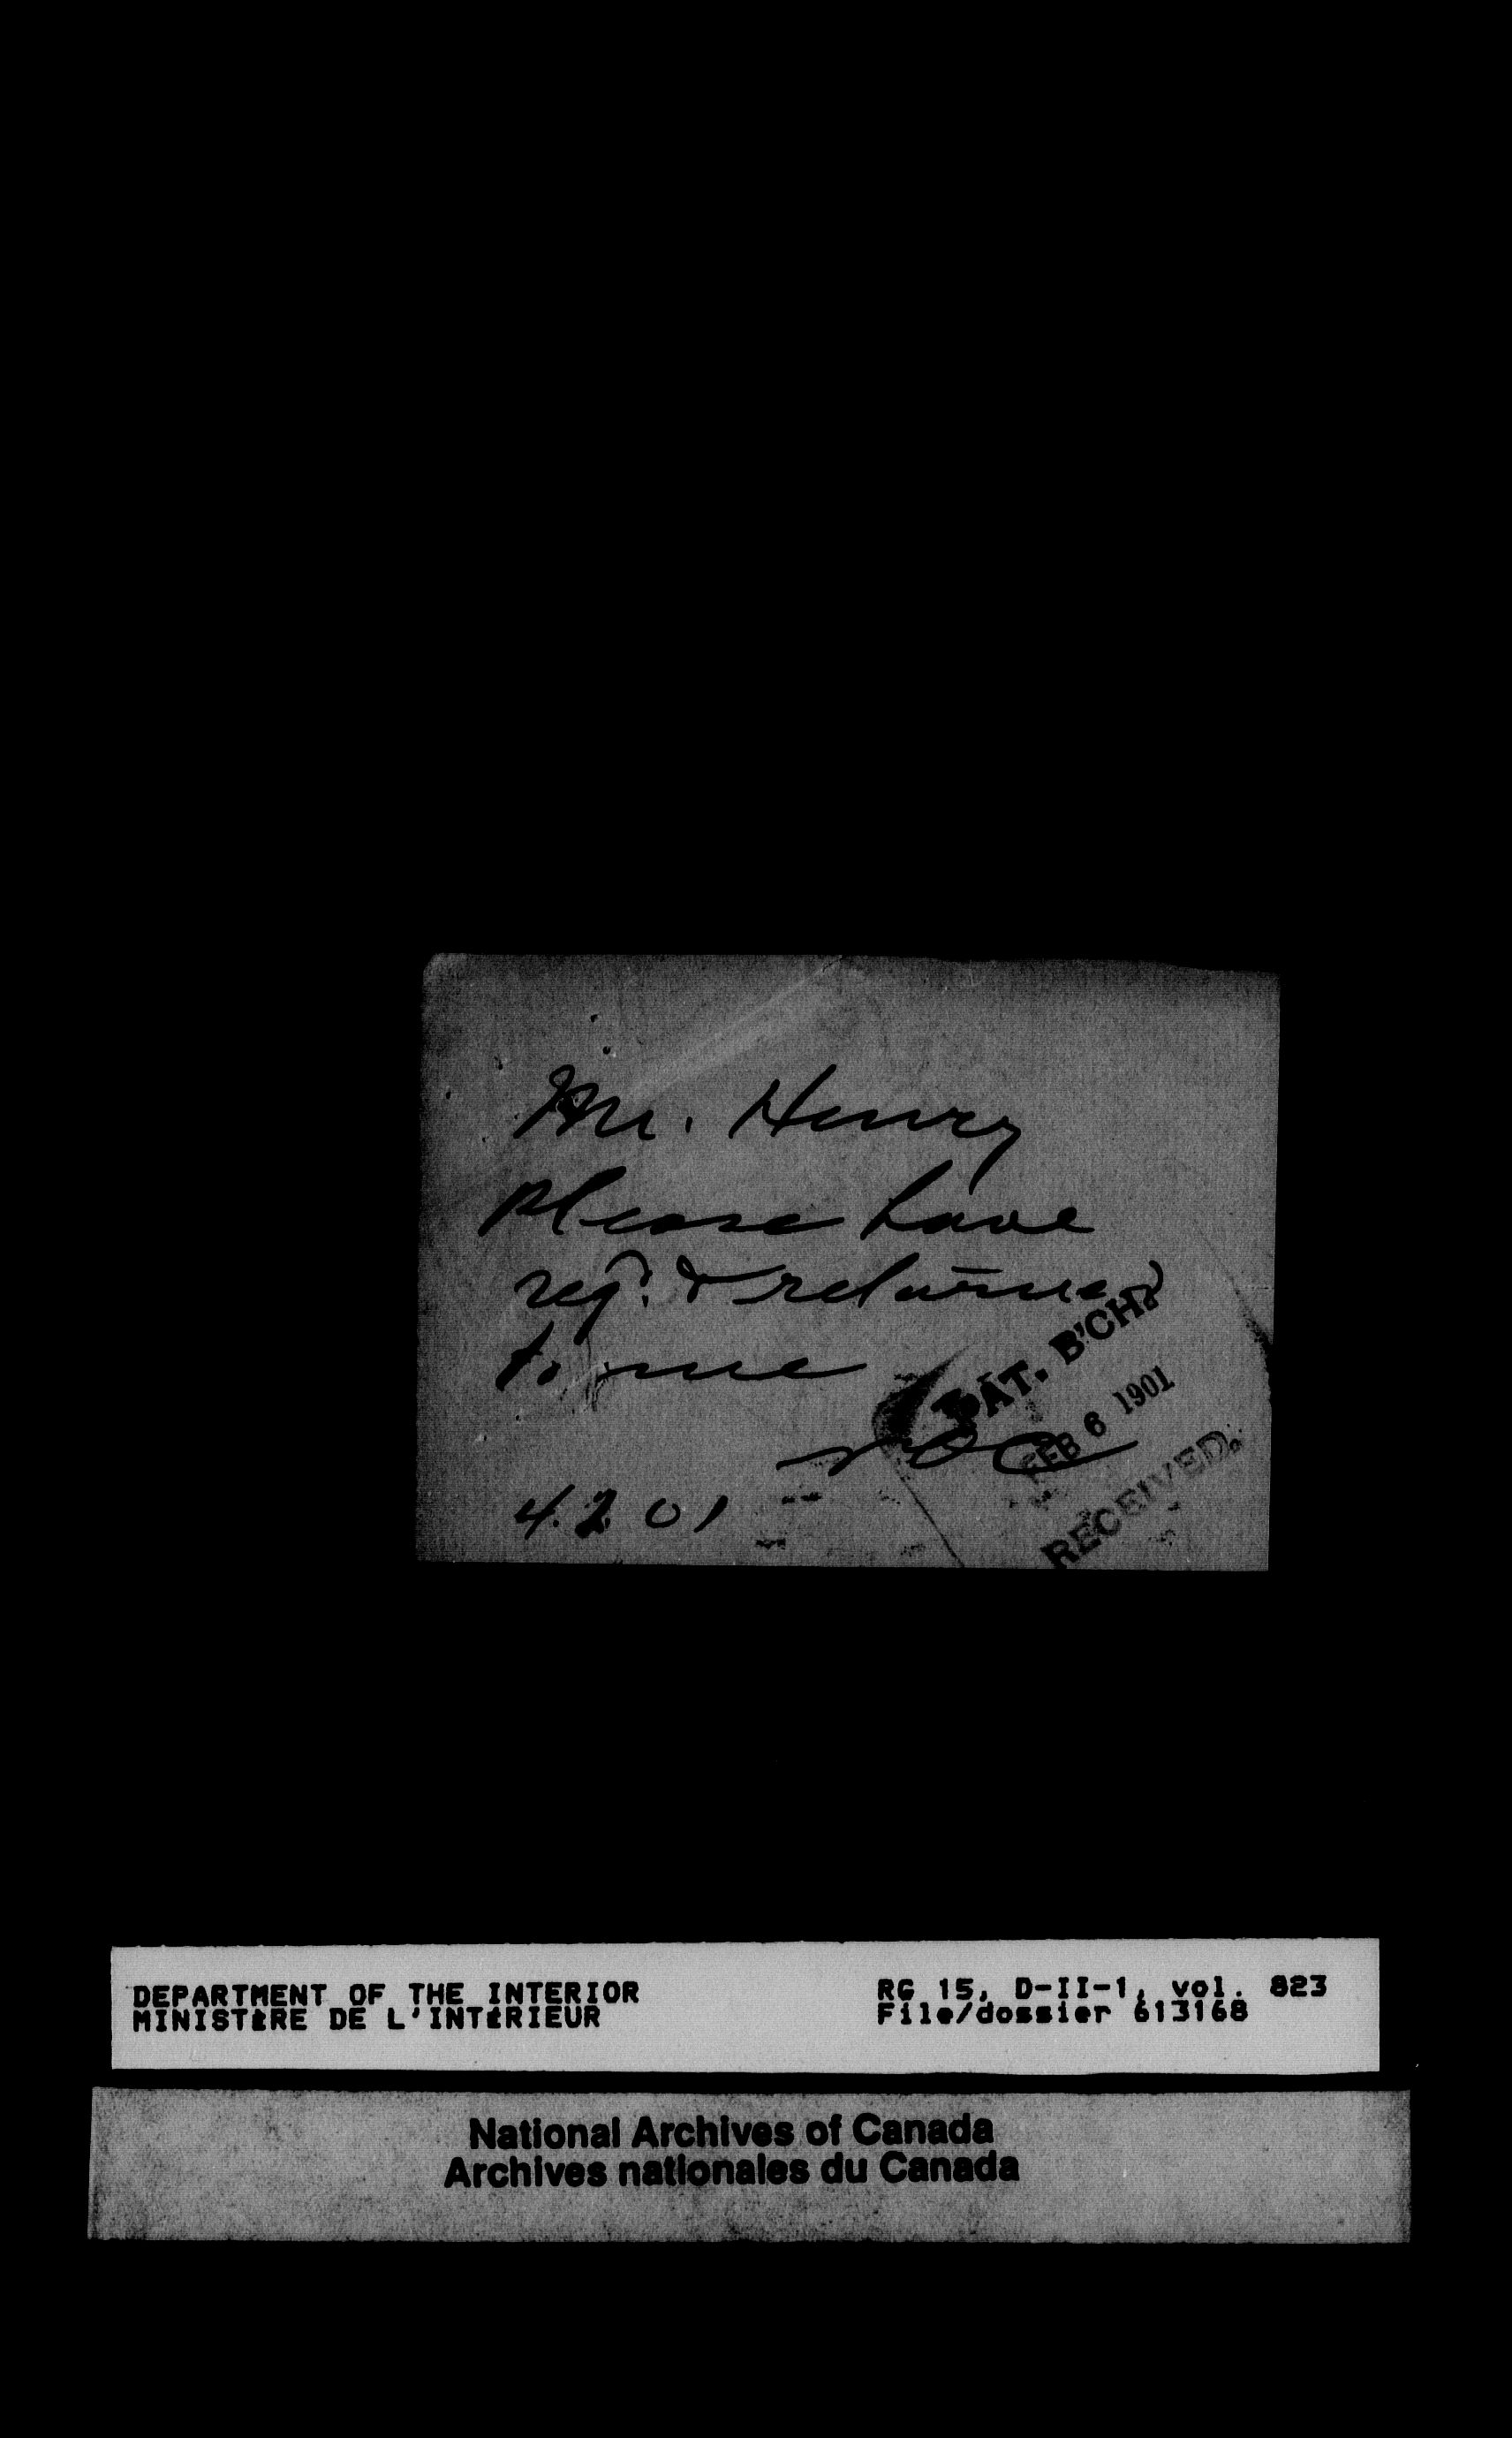 Mr. Henry
please have
reg. & returned
to me
4.2.01
PAT. B'CH.
FEB 6 1901
RECEIVED.
DEPARTMENT OF THE INTERIOR
MINISTÈRE DE L'INTÉRIEUR
RG 15, D-II-1, vol. 823
File/dossier 613168
National Archives of Canada
Archives nationales du Canada